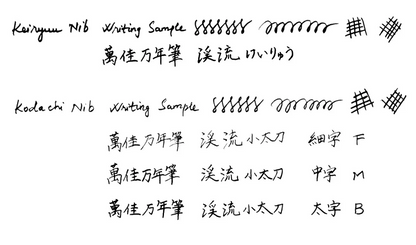 Keiryuu Nib Writing Sample
萬佳万年筆 渓流 けいりゅう
Kodachi Nib Writing Sample
萬佳万年筆 渓流 小太刀 細字 F
萬佳万年筆 渓流 小太刀 中字 M
萬佳万年筆 渓流 小太刀 太字 B